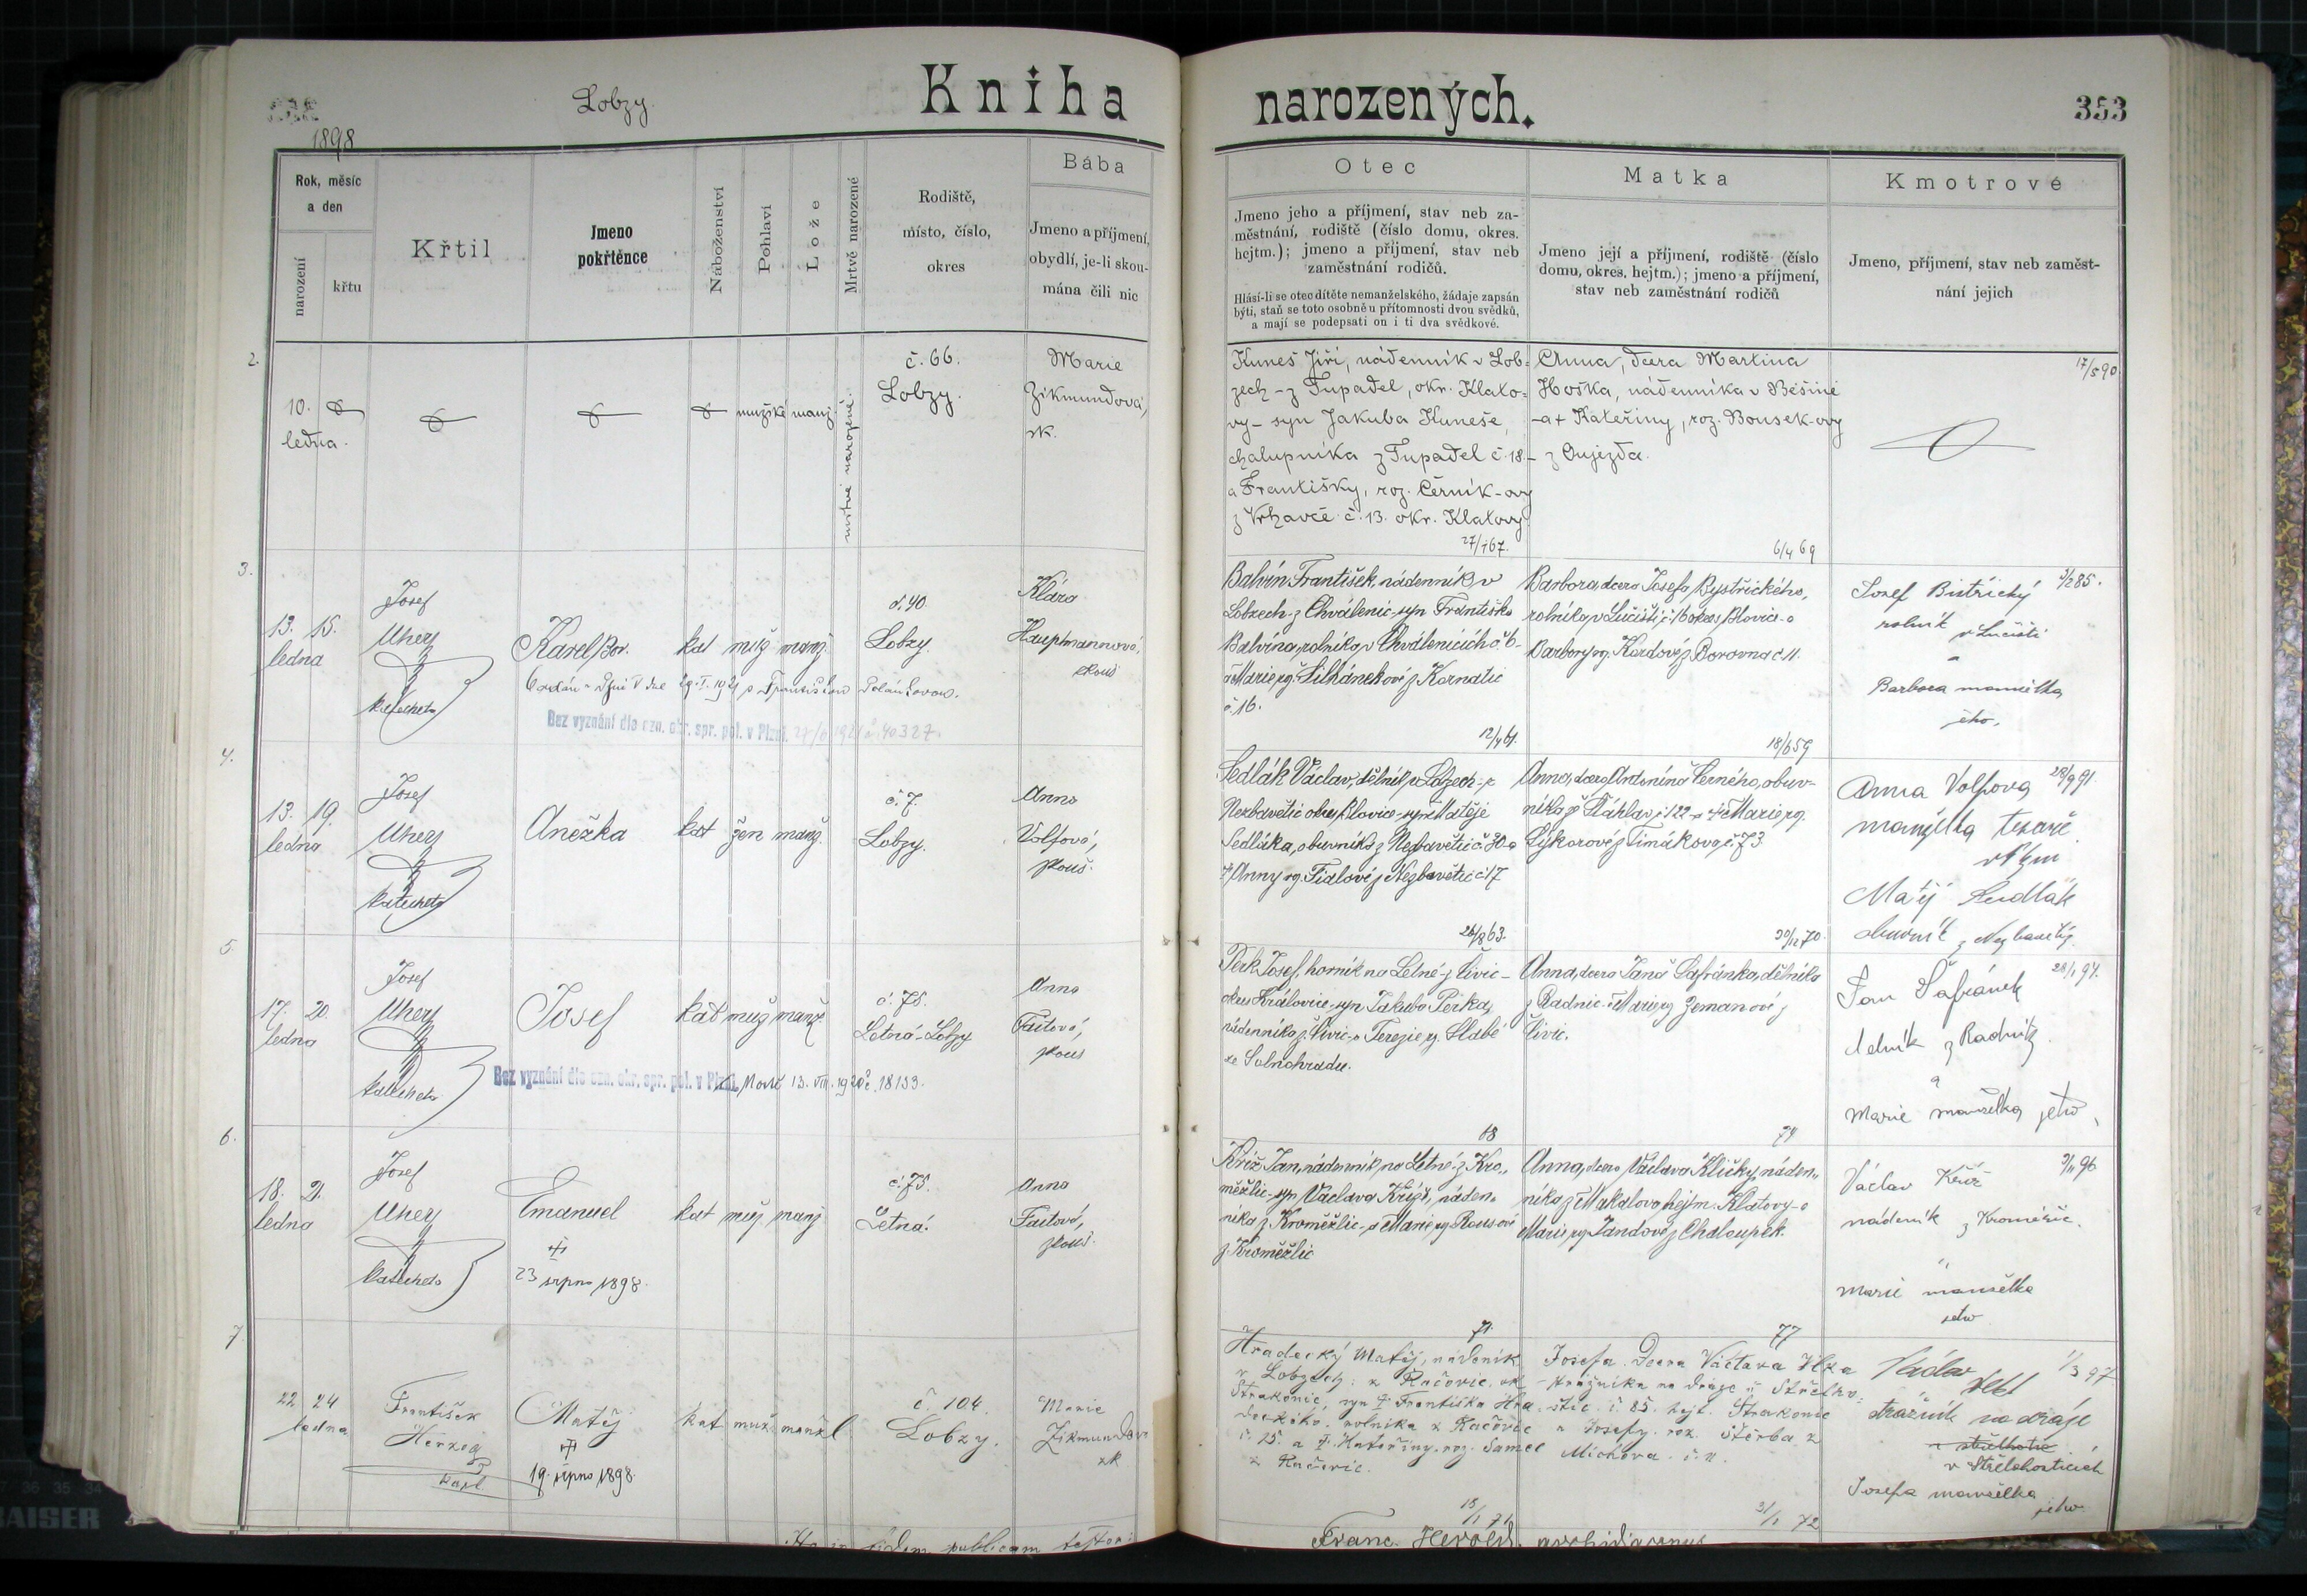 Lobzy.
Kniha
narozených.
353
1898
Rok, měsíc
a den
narození
křtu
Křtil
Jmeno
pokřtěnce
Náboženství
Pohlaví
Lože
Mrtvě narozené
Rodiště,
místo, číslo,
okres
Bába
Jmeno a příjmení,
obydlí, je-li skou-
mána čili nic
Otec
Jmeno jeho a příjmení, stav neb za-
městnání, rodiště (číslo domu, okres.
hejtm.); jmeno a příjmení, stav neb
zaměstnání rodičů.
Hlásí-li se otec dítěte nemanželského, žádaje zapsán
býti, staň se toto osobně u přítomnosti dvou svědků,
a mají se podepsati on i ti dva svědkové.
Matka
Jmeno její a příjmení, rodiště (číslo
domu, okres. hejtm.); jmeno a příjmení,
stav neb zaměstnání rodičů
Kmotrové
Jmeno, příjmení, stav neb zaměst-
nání jejich
2.
10.
ledna.
mužské manž.
mrtvě narozené.
č. 66.
Lobzy.
Marie
Zikmundová,
zk.
Kuneš Jiří, nádenník v Lob-
zech - z Tupadel, okr. Klato-
vy - syn Jakuba Kuneše,
chalupníka z Tupadel č. 18. -
a Františky, roz. Černík-ovy
z Vrhavče č. 13. okr. Klatovy
27/1 67.
Anna, dcera Martina
Hoška, nádenníka v Běšině
- a + Kateřiny, roz. Bousek-ovy
- z Oujezda.
6/4 69
17/5 90.
3.
13. 15.
ledna
Josef
Uherz
katecheta
Karel Bor.
kat muž manž.
č. 40.
Lobzy.
Klára
Hauptmannová,
zkouš
29. I. 1921 s Františkou Polánkovou.
Bez vyznání dle ozn. okr. spr. pol. v Plzni 40327.
Balvín František, nádenník v
Lobzech - z Chválenic - syn Františka
Balvína, rolníka v Chválenicích č. 6 -
a Marie roz. Šilhánekové z Kornatic
č. 16.
12/4 61.
Barbora, dcera Josefa Bystřického,
rolníka v Lučišti č. 16 okres Blovice - a
Barbory roz. Kardové z Borovna č. 11.
18/6 59
Josef Bistřický 3/2 85.
rolník v Lučišti
a
Barbora manželka
jeho.
4.
13. 19.
ledna
Josef
Uherz
katecheta
Anežka
kat žen manž.
č. 7.
Lobzy.
Anna
Volfová,
zkouš.
Sedlák Václav, dělník v Lobzech - z
Nezbavětic okres Blovice - syn Matěje
Sedláka, obuvníka z Nezbavětic č. 30 a
Anny roz. Fialové z Nezbavětic č. 17
26/8 63.
Anna, dcera Antonína Černého, obuv-
níka z Šťáhlav č. 122 - a Marie roz.
Lýkorové z Timákova č. 73.
30/12 70.
Anna Volfova 28/9 91.
manželka tesaře
v Plzni
Matěj Sedlák
obuvník z Nezbavětic
5.
17. 20.
ledna
Josef
Uherz
katecheta
Josef
kat muž manž.
č. 75.
Letná - Lobzy
Anna
Faitová,
zkouš
Bez vyznání dle ozn. okr. spr. pol. v Mostě 13. VIII. 1920 č. 18133.
Perk Josef, horník na Letné - z Livic -
okres Královice - syn Jakuba Perka,
nádenníka z Livic - a Terezie roz. Slabé
ze Solnohradu.
68
Anna, dcera Jana Šafránka, dělníka
z Radnic - a Marie roz. Zemanové z
Livic.
74
Jan Šafránek 28/1 94.
dělník z Radnic
a
Marie manželka jeho.
6.
18. 21.
ledna
Josef
Uherz
katecheta
Emanuel
23 srpna 1898.
kat muž manž
č. 75.
Letná.
Anna
Faitová,
zkouš.
Kříž Jan, nádenník na Letné - z Kro-
měžlic - syn Václava Kříže, náden-
níka z Kroměžlic - a Marie roz. Rousové
z Kroměžlic
71.
Anna, dcera Václava Kličky, náden-
níka z Makalova hejtm. Klatovy - a
Marie roz. Jandové z Chaloupek.
77
Václav Kříž 3/11 96
nádeník z Kroměžic.
a
Marie manželka
jeho
7.
22 24
ledna
František
Herzig
kapl
Matěj
19. srpna 1898.
kat muž. manžel
č. 104.
Lobzy.
Marie
Zikmundova
zk
Hradecký Matěj, nádeník
v Lobzech; z Račovic, ok.
Strakonic, syn Františka Hra-
deckého, rolníka z Račovic
č. 25. a Kateřiny, roz. Samec
z Račovic.
18/1 71
Josefa. Dcera Václava Jlka
strážníka na dráze v Střelho-
štic. č. 85. hejt. Strakonic
a Josefy. roz. Štěrba z
Míchova. č. 11.
31/1 72
Václav 1/3 97
strážník na dráze
v Střelohosticích
Josefa manželka
jeho.
fidem publicam testor:
Franc. Herold, archidiaconus